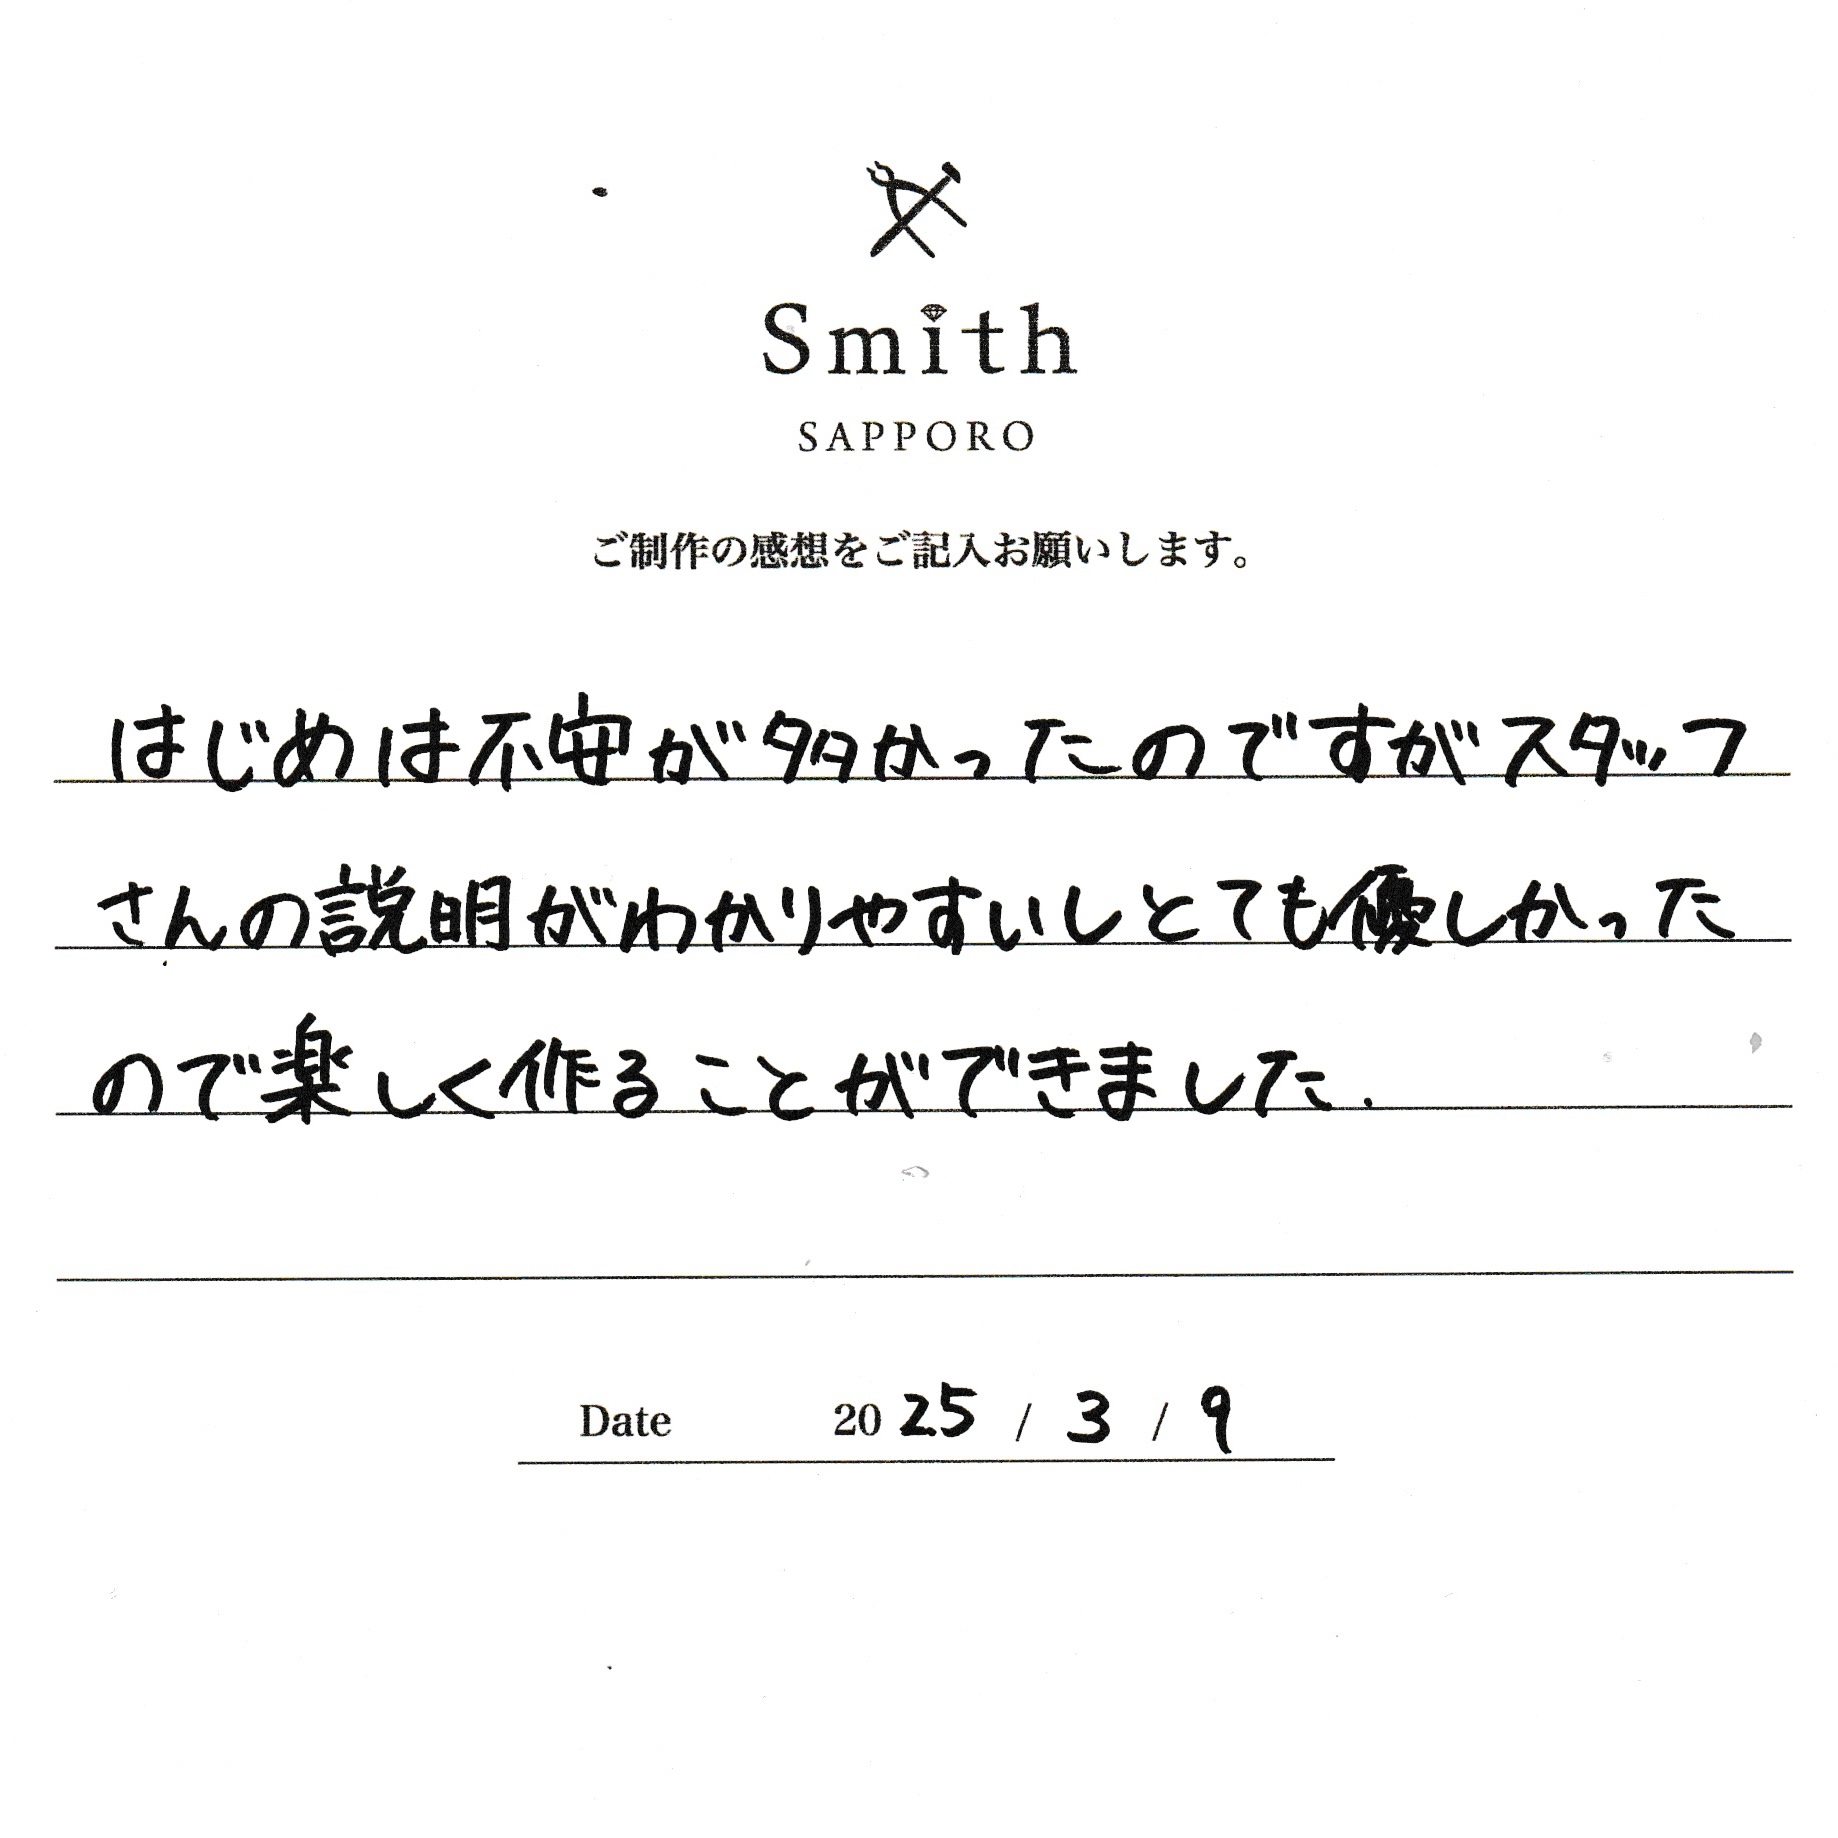 Smith
SAPPORO
ご制作の感想をご記入お願いします。
はじめは不安が多かったのですがスタッフ
さんの説明がわかりやすいしとても優しかった
ので楽しく作ることができました.
Date 2025 / 3 / 9